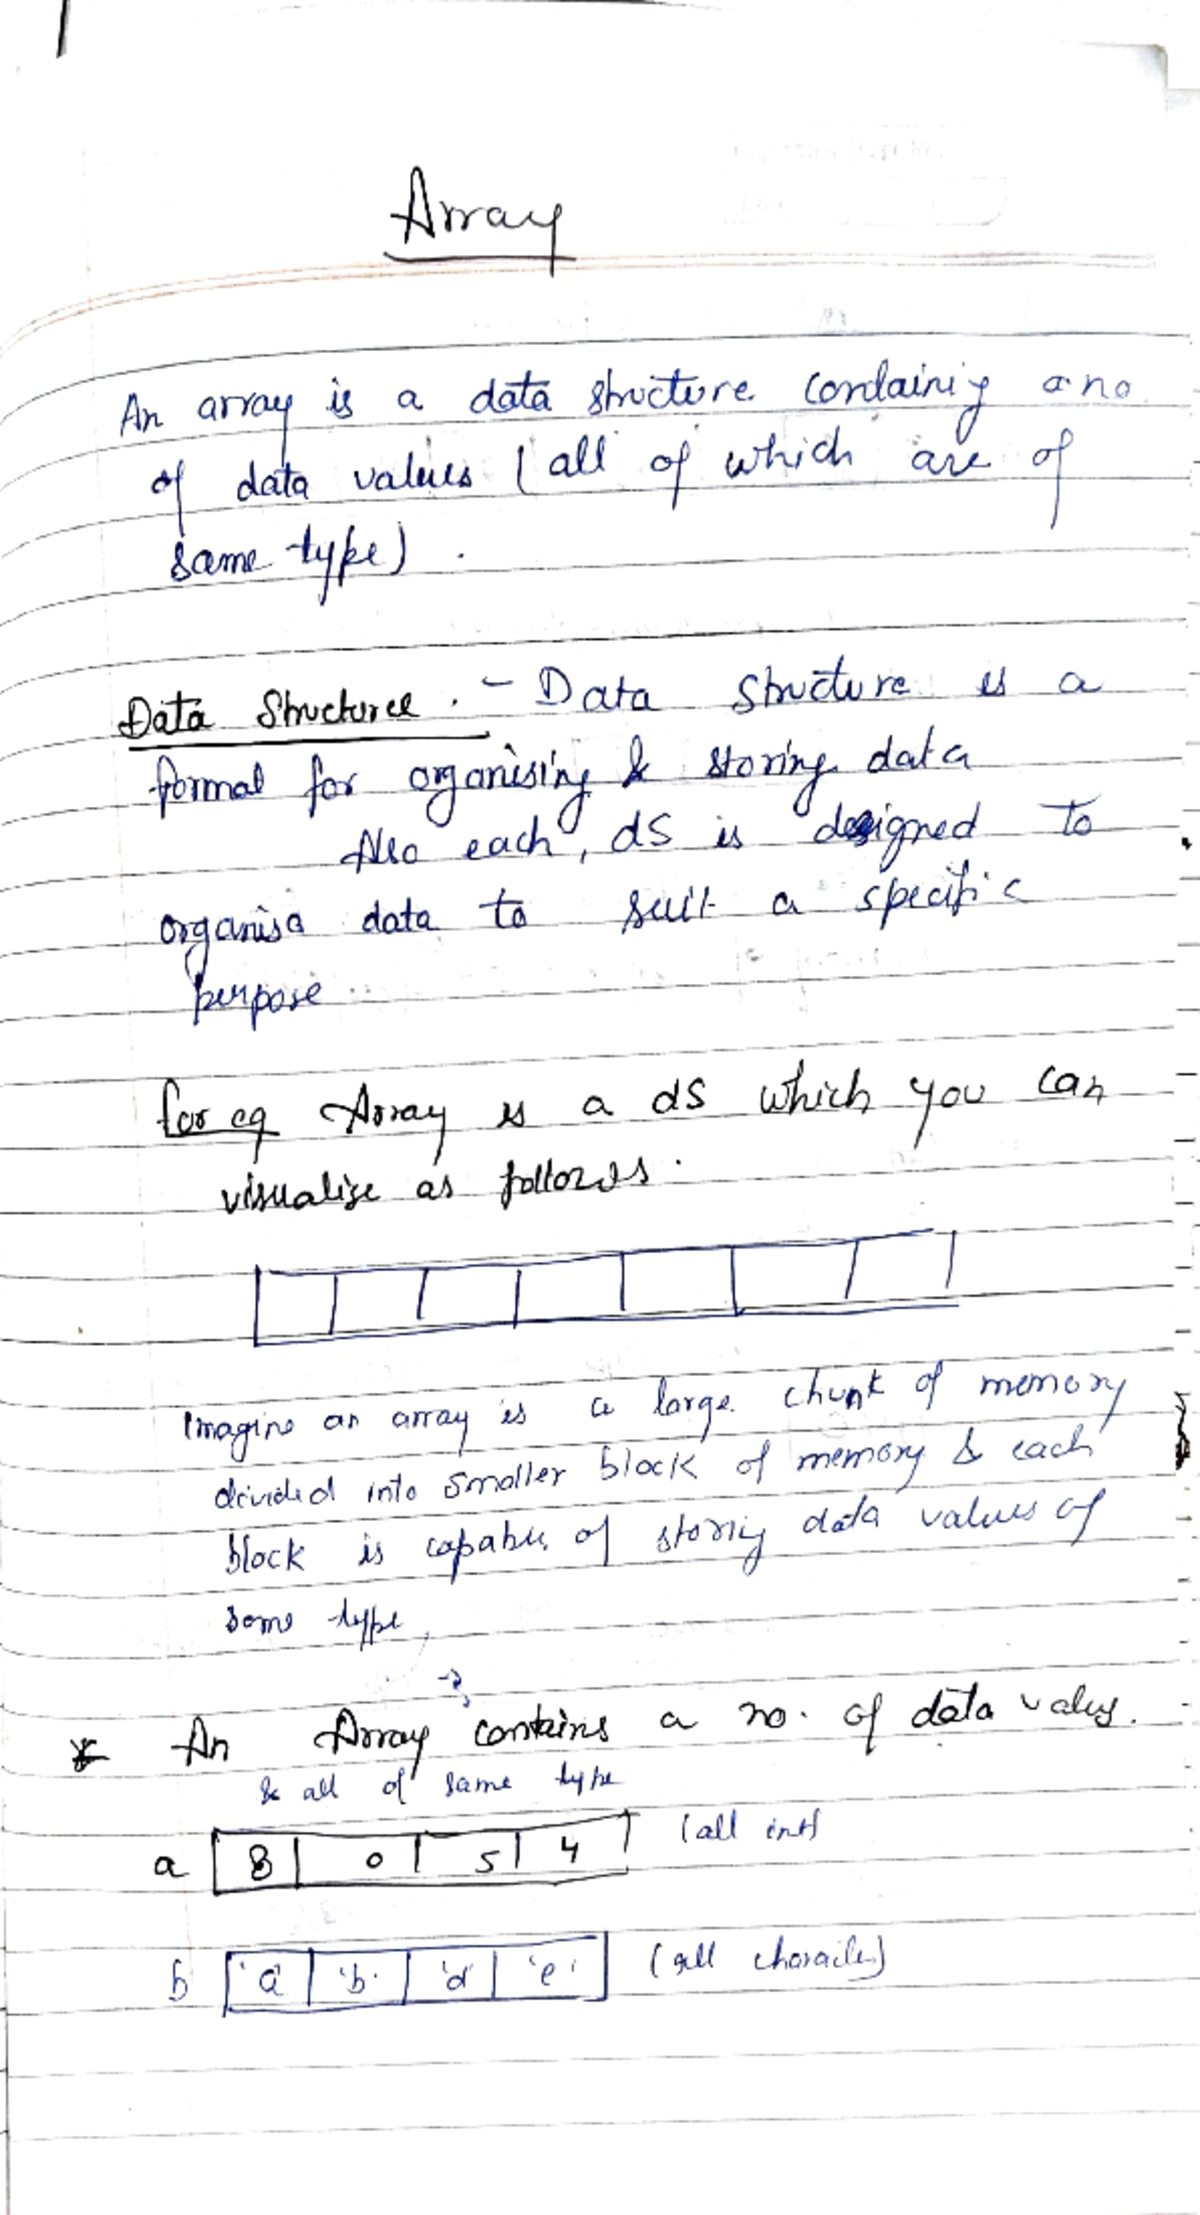 Array
An array is a data structure containing a no.
of data values (all of which are of
same type).
Data Structure. - Data structure is a
format for organising & storing data
Also each, ds is designed to
organise data to suit a specific
purpose
for eg Array is a ds which you can
visualize as follows.
Imagine an array is a large chunk of memory
divided into smaller block of memory & each
block is capable of storing data values of
some type
* An Array contains a no. of data values.
& all of same type
a 8 0 5 4 (all int)
b 'a' 'b' 'd' 'e' (all character)